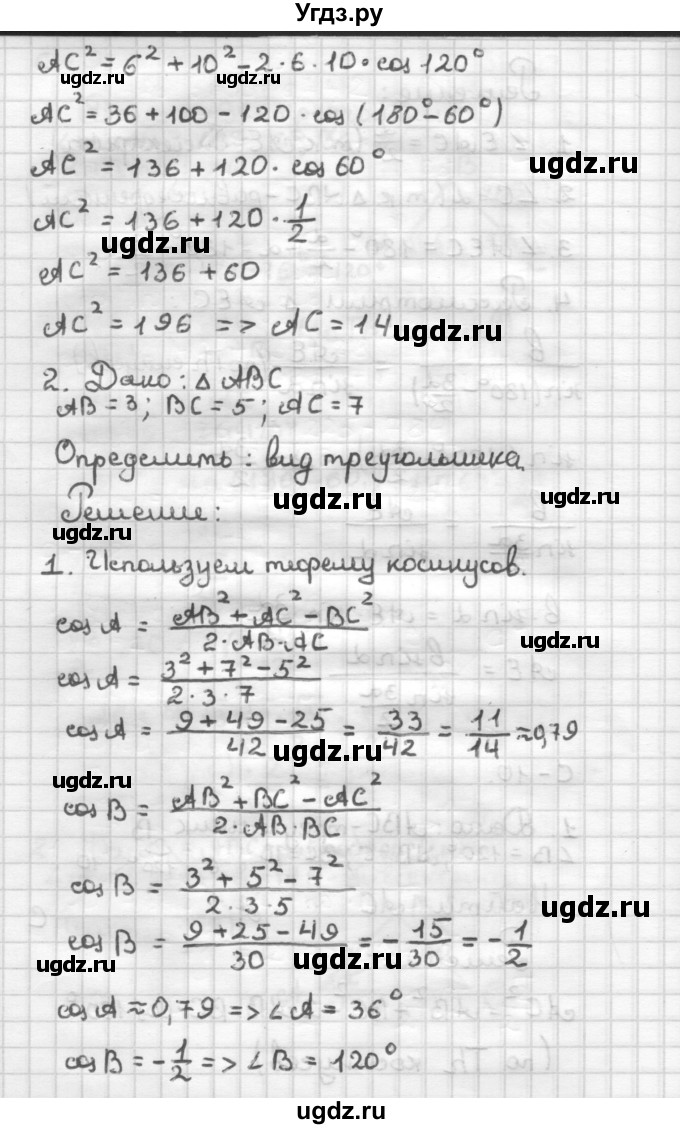 Угдз.ру
AC² = 6² + 10² - 2 · 6 · 10 · cos 120°
ugdz.ru ugdz.ru
AC² = 36 + 100 - 120 · cos (180° - 60°)
AC² = 136 + 120 · cos 60°
ugdz.ru
AC² = 136 + 120 · 1/2
ugdz.ru
AC² = 136 + 60
AC² = 196 => AC = 14
ugdz.ru
2. Дано: Δ ABC
ugdz.ru
AB = 3; BC = 5; AC = 7
Определить: вид треугольника
ugdz.ru ugdz.ru
Решение:
ugdz.ru
1. Используем теорему косинусов.
cos A = (AB² + AC² - BC²)/(2 · AB · AC)
ugdz.ru
cos A = (3² + 7² - 5²)/(2 · 3 · 7)
cos A = (9 + 49 - 25)/42 = 33/42 = 11/14 ≈ 0,79
ugdz.ru
ugdz.ru
cos B = (AB² + BC² - AC²)/(2 · AB · BC)
cos B = (3² + 5² - 7²)/(2 · 3 · 5)
ugdz.ru
cos B = (9 + 25 - 49)/30 = -15/30 = -1/2
ugdz.ru ugdz.ru
cos A ≈ 0,79 => ∠A = 36°
cos B = -1/2 => ∠B = 120°
ugdz.ru
ugdz.ru